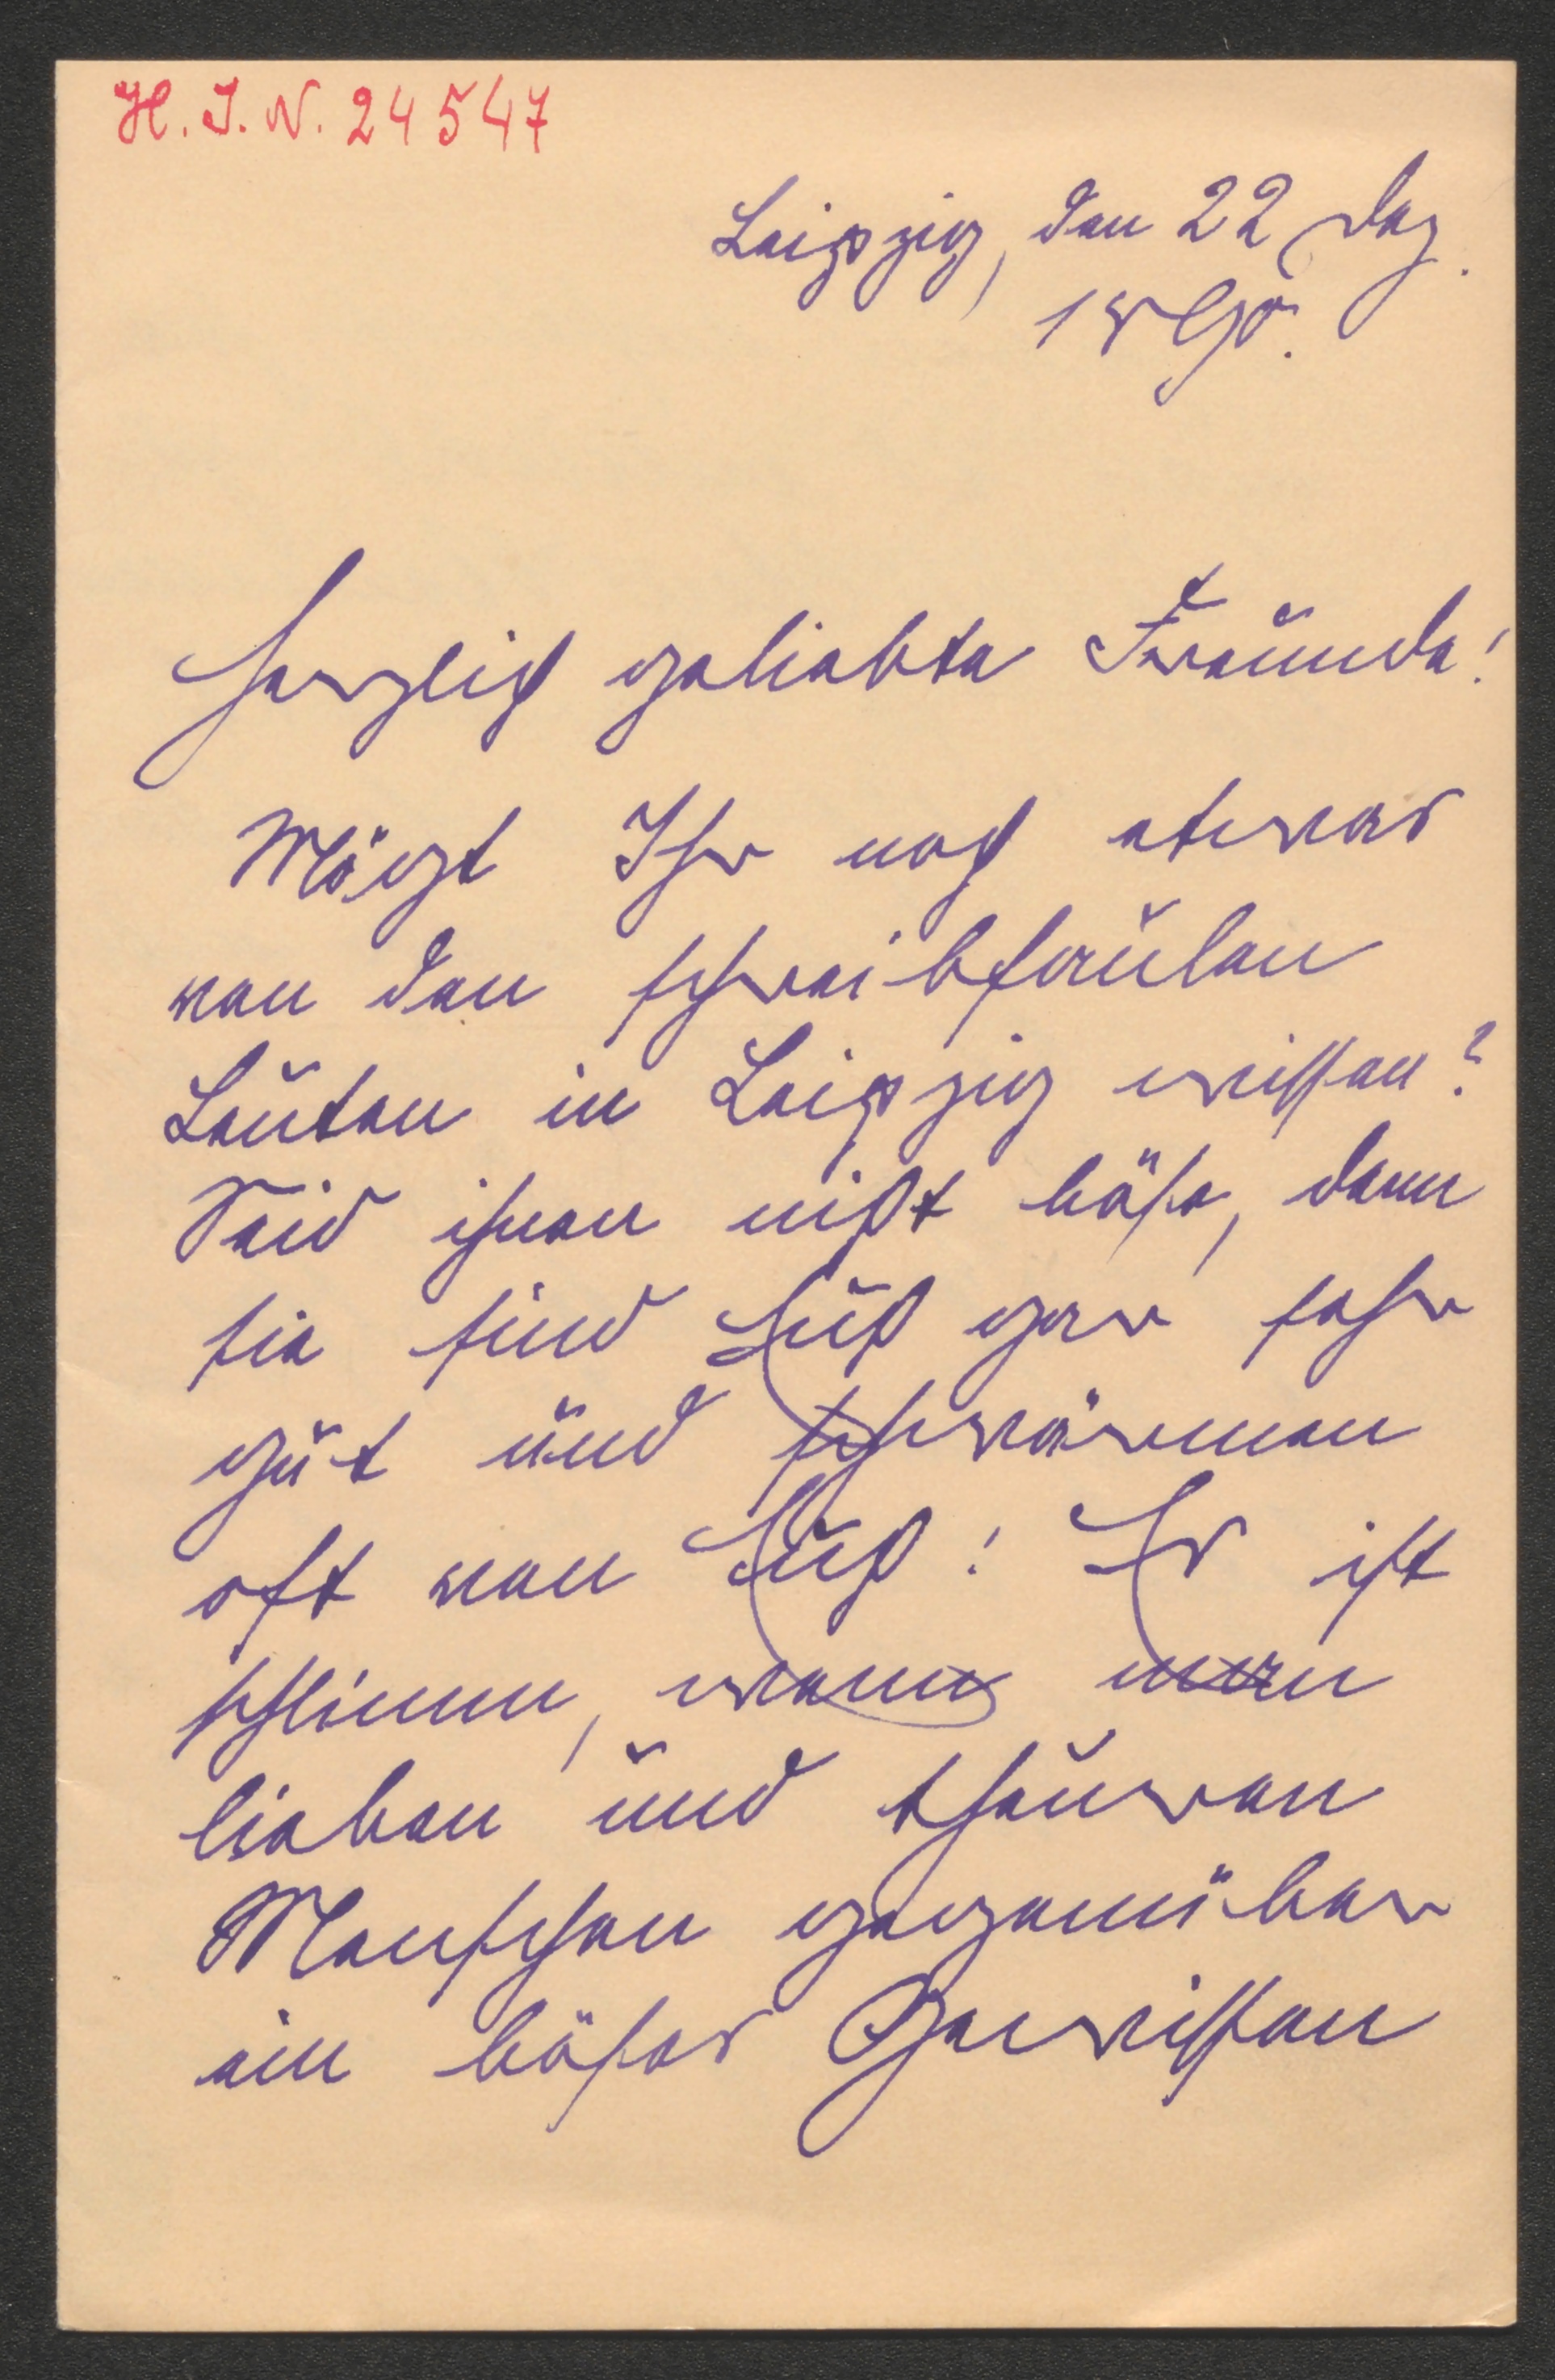 H. I. N. 24547
Leipzig, den 22 Dez.
Herzlich geliebte Freunde!
Mögt Ihr noch etwas
von den schreibfaulen
Leuten in Leipzig wissen?
Seid ihnen nicht böse, denn
sie sind Euch gar sehr
gut und schwärmen
oft von Euch! Es ist
schlimm, wenn man
lieben und theuren
Menschen gegenüber
ein böses Gewissen